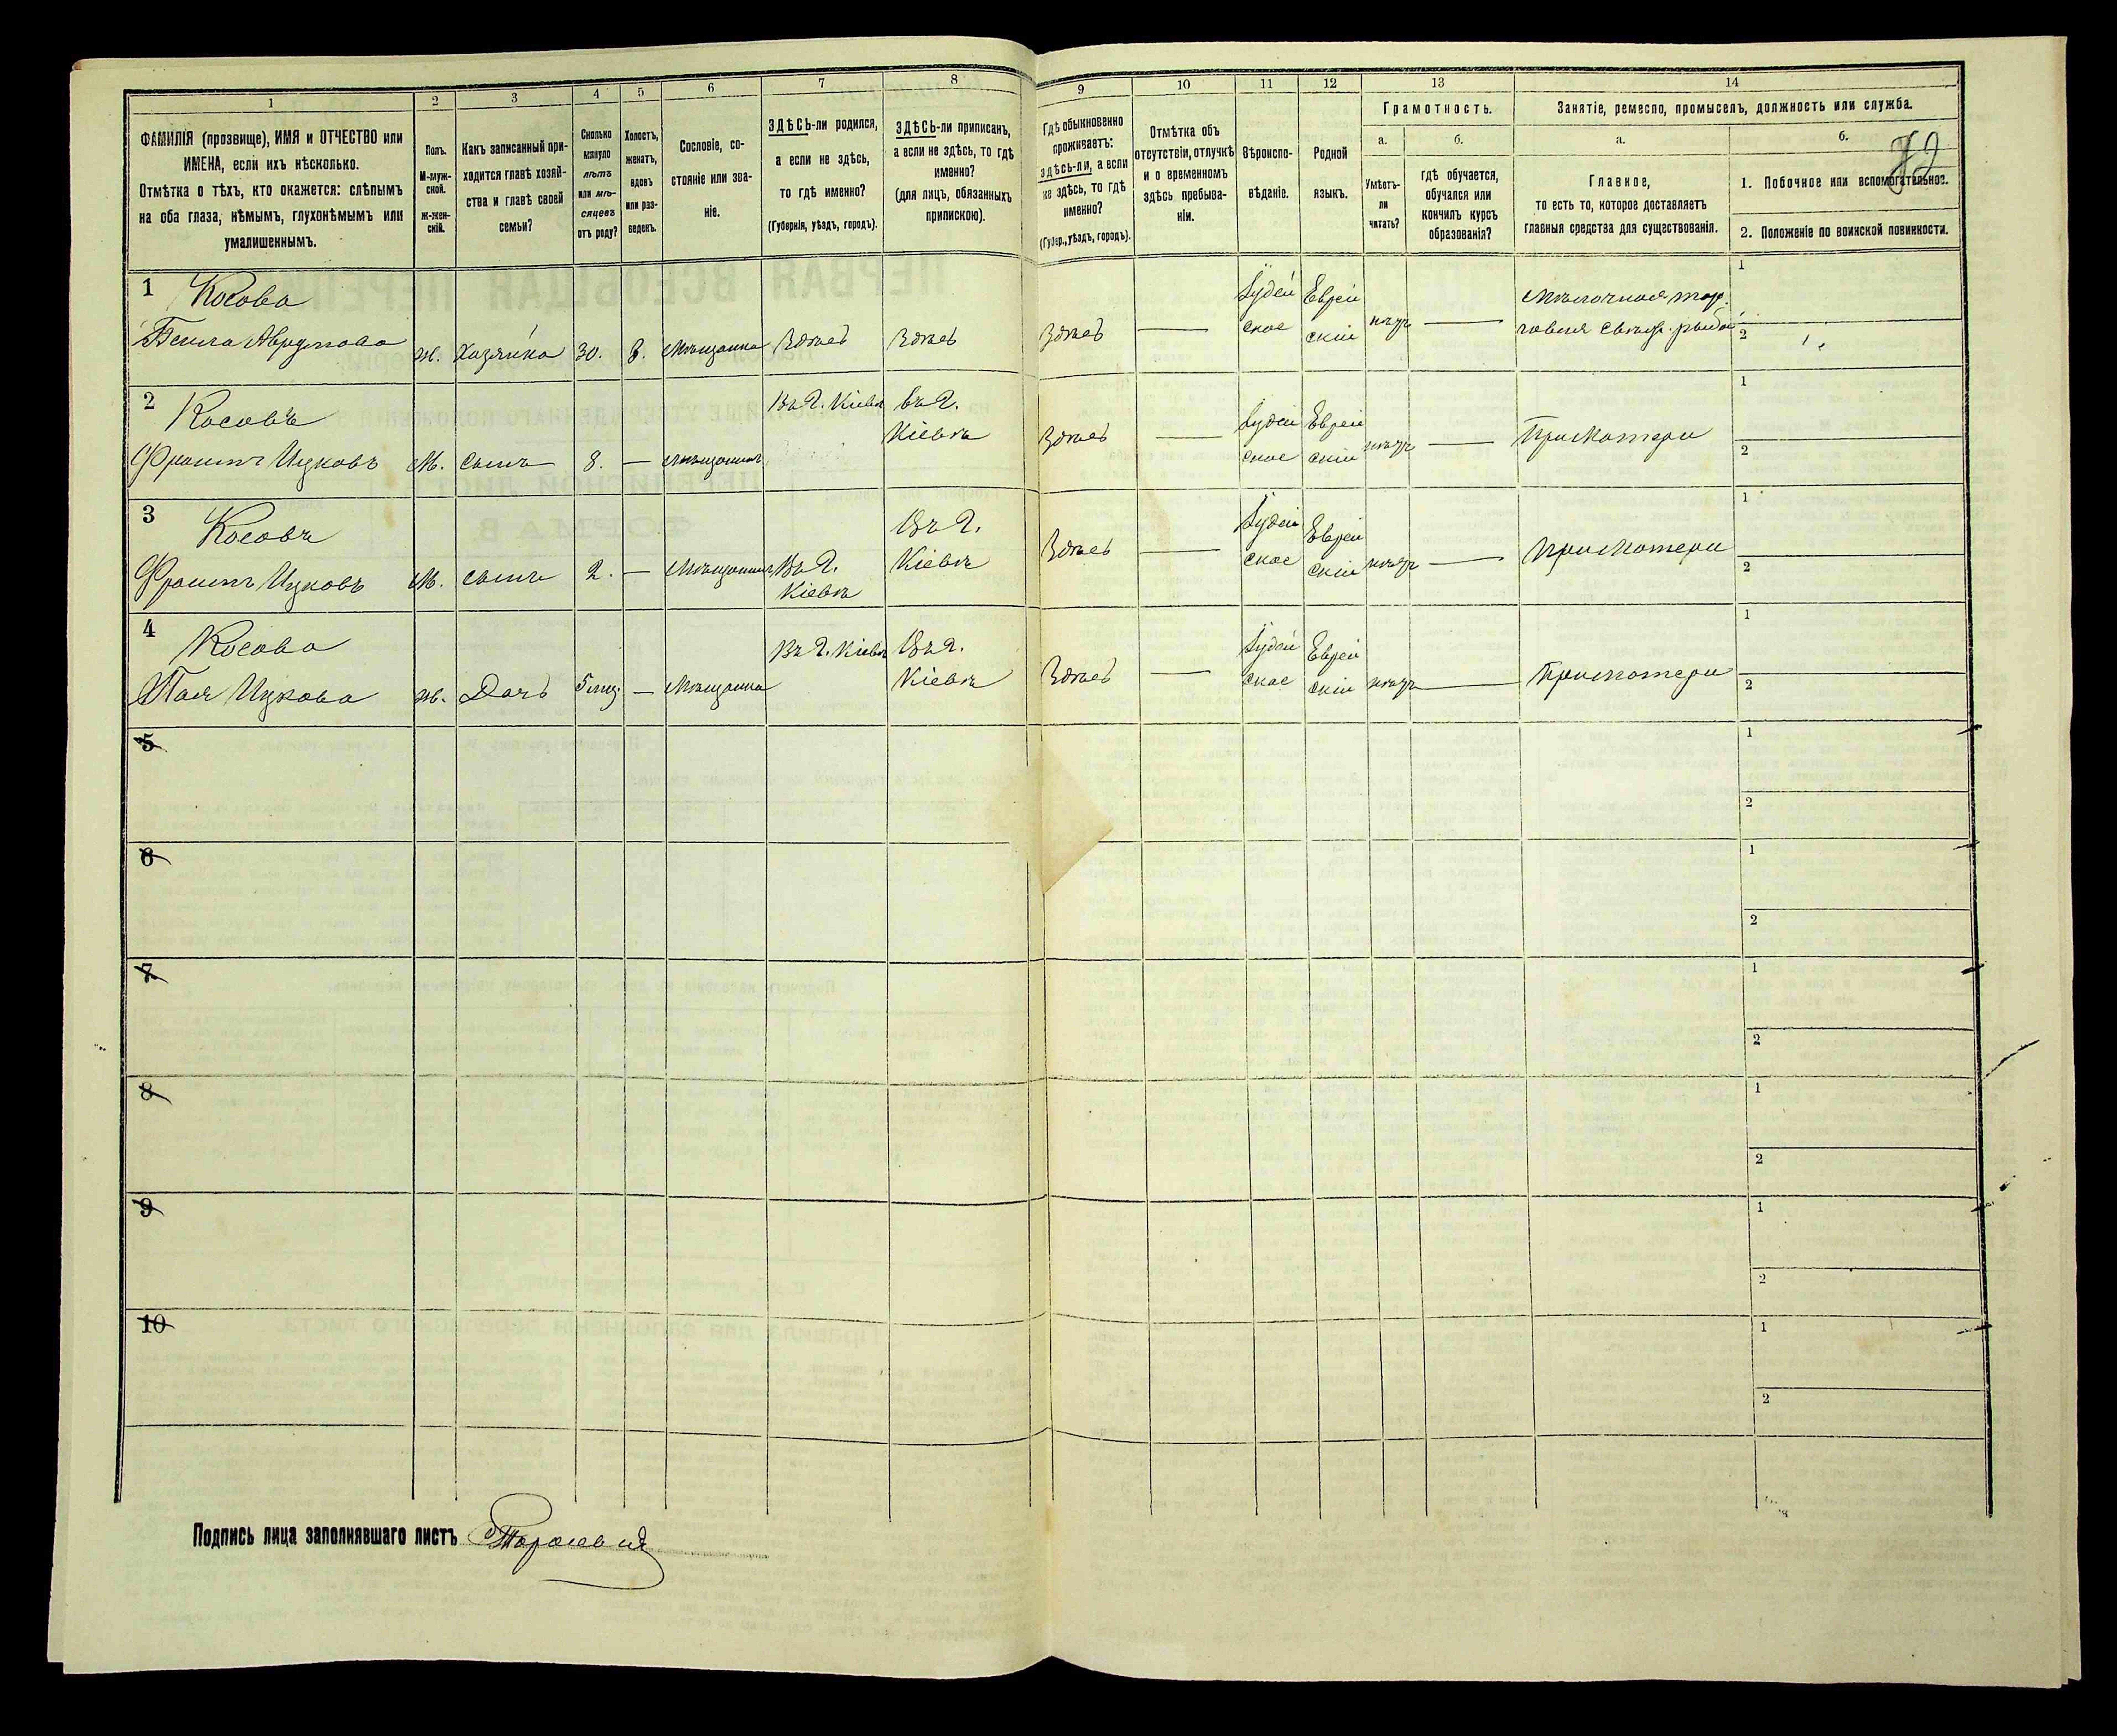 1 2 3 4 5 6 7 8 9 10 11 12 13 14
ФАМИЛІЯ (прозвище), ИМЯ и ОТЧЕСТВО или
ИМЕНА, если ихъ нѣсколько.
Отмѣтка о тѣхъ, кто окажется: слѣпымъ
на оба глаза, нѣмымъ, глухонѣмымъ или
умалишеннымъ.
Полъ.
М-муж-
ской.
ж-жен-
скій.
Какъ записанный при-
ходится главѣ хозяй-
ства и главѣ своей
семьи?
Сколько
минуло
лѣтъ
или мѣ-
сяцевъ
отъ роду?
Холостъ,
женатъ,
вдовъ
или раз-
веденъ.
Сословіе, со-
стояніе или зва-
ніе.
ЗДѢСЬ-ли родился,
а если не здѣсь,
то гдѣ именно?
(Губернія, уѣздъ, городъ).
ЗДѢСЬ-ли приписанъ,
а если не здѣсь, то гдѣ
именно?
(для лицъ, обязанныхъ
припискою).
Гдѣ обыкновенно
проживаетъ:
здѣсь-ли, а если
не здѣсь, то гдѣ
именно?
(Губер., уѣздъ, городъ).
Отмѣтка объ
отсутствіи, отлучкѣ
и о временномъ
здѣсь пребыва-
ніи.
Вѣроиспо-
вѣданіе.
Родной
языкъ.
Грамотность.
а.
Умѣетъ-
ли
читать?
б.
гдѣ обучается,
обучался или
кончилъ курсъ
образованія?
Занятіе, ремесло, промыселъ, должность или служба.
а.
Главное,
то есть то, которое доставляетъ
главныя средства для существованія.
б.
1. Побочное или вспомогательное.
2. Положеніе по воинской повинности.
1 Косова
Бейла Аврумова ж. Хозяйка 30. в. Мѣщанка Здѣсь Здѣсь Здѣсь — Іудей
ское Еврей
скій —
1
2
2 Косовъ
Ицковъ М. сынъ 8. — мѣщанинъ Въ г. Кіевѣ въ г.
Кіевѣ Здѣсь — Іудей
ское Еврей
скій — При матери
1
2
3 Косовъ
Ицковъ М. сынъ 2. — Мѣщанинъ Въ г.
Кіевѣ Въ г.
Кіевѣ Здѣсь — Іудей
ское Еврей
скій — При матери
1
2
4 Косова
Ицкова ж. Дочь 5 — Мѣщанка Въ г. Кіевѣ Въ г.
Кіевѣ Здѣсь — Іудей
ское Еврей
скій — При матери
1
2
5
1
2
6
1
2
7
1
2
8
1
2
9
1
2
10
1
2
Подпись лица заполнявшаго листъ